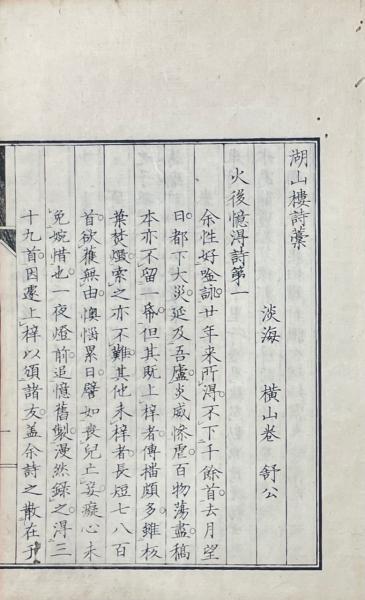 湖山樓詩藁
淡海 橫山卷 舒公
火後憶得詩第一
余性好唫詠廿年来所得不下千餘首去月望
日都下大災延及吾盧炎威慘虐百物蕩盡稿
本亦不留一帋但其既上梓者傳播頗多雖板
葉焚燬索之亦不難其他未梓者長短七八百
首欲蒐無由懊惱累日譬如喪兒止妄癡心未
免婉惜也一夜燈前追憶舊製漫然錄之得三
十九首因遽上梓以頒諸友盖余詩之散在于